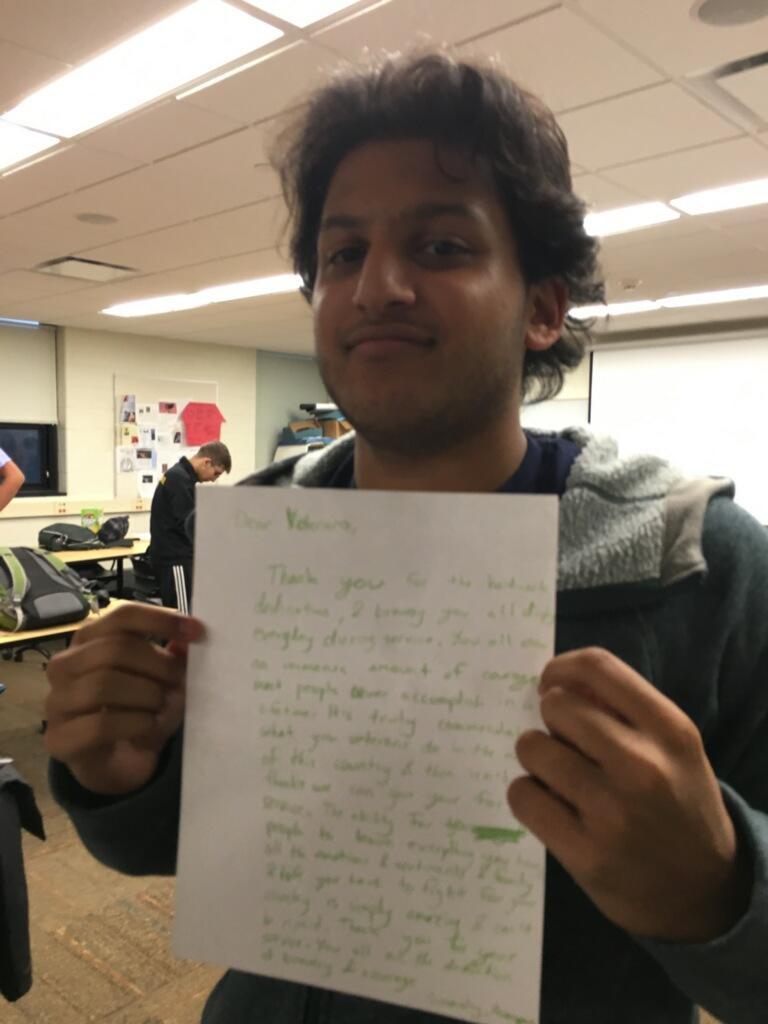 Dear Veterans,
Thank you for the hardwork,
dedication, & bravery you all
everyday during service. You all
an immense amount of courage
most people never accomplish in a
lifetime. It's truly commendable
what you veterans do in the
of this country & then
thanks we can give your for
service. The ability for
people to leave everything you have
all the emotions & & family
& life you have to fight for your
country is simply amazing & can't
be Thank you for your
service. You all are the definition
of bravery & courage
Sincerely,